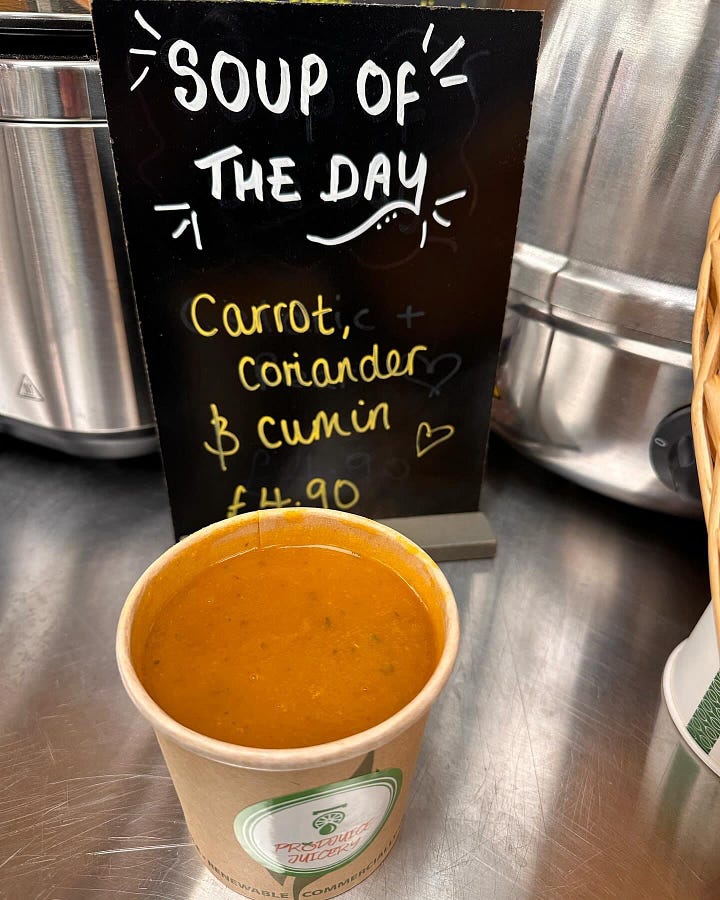 SOUP OF
THE DAY
Carrot,
coriander
& cumin
£4.90
PRODJUICE
JUICERY
RENEWABLE
COMMERCIALLY